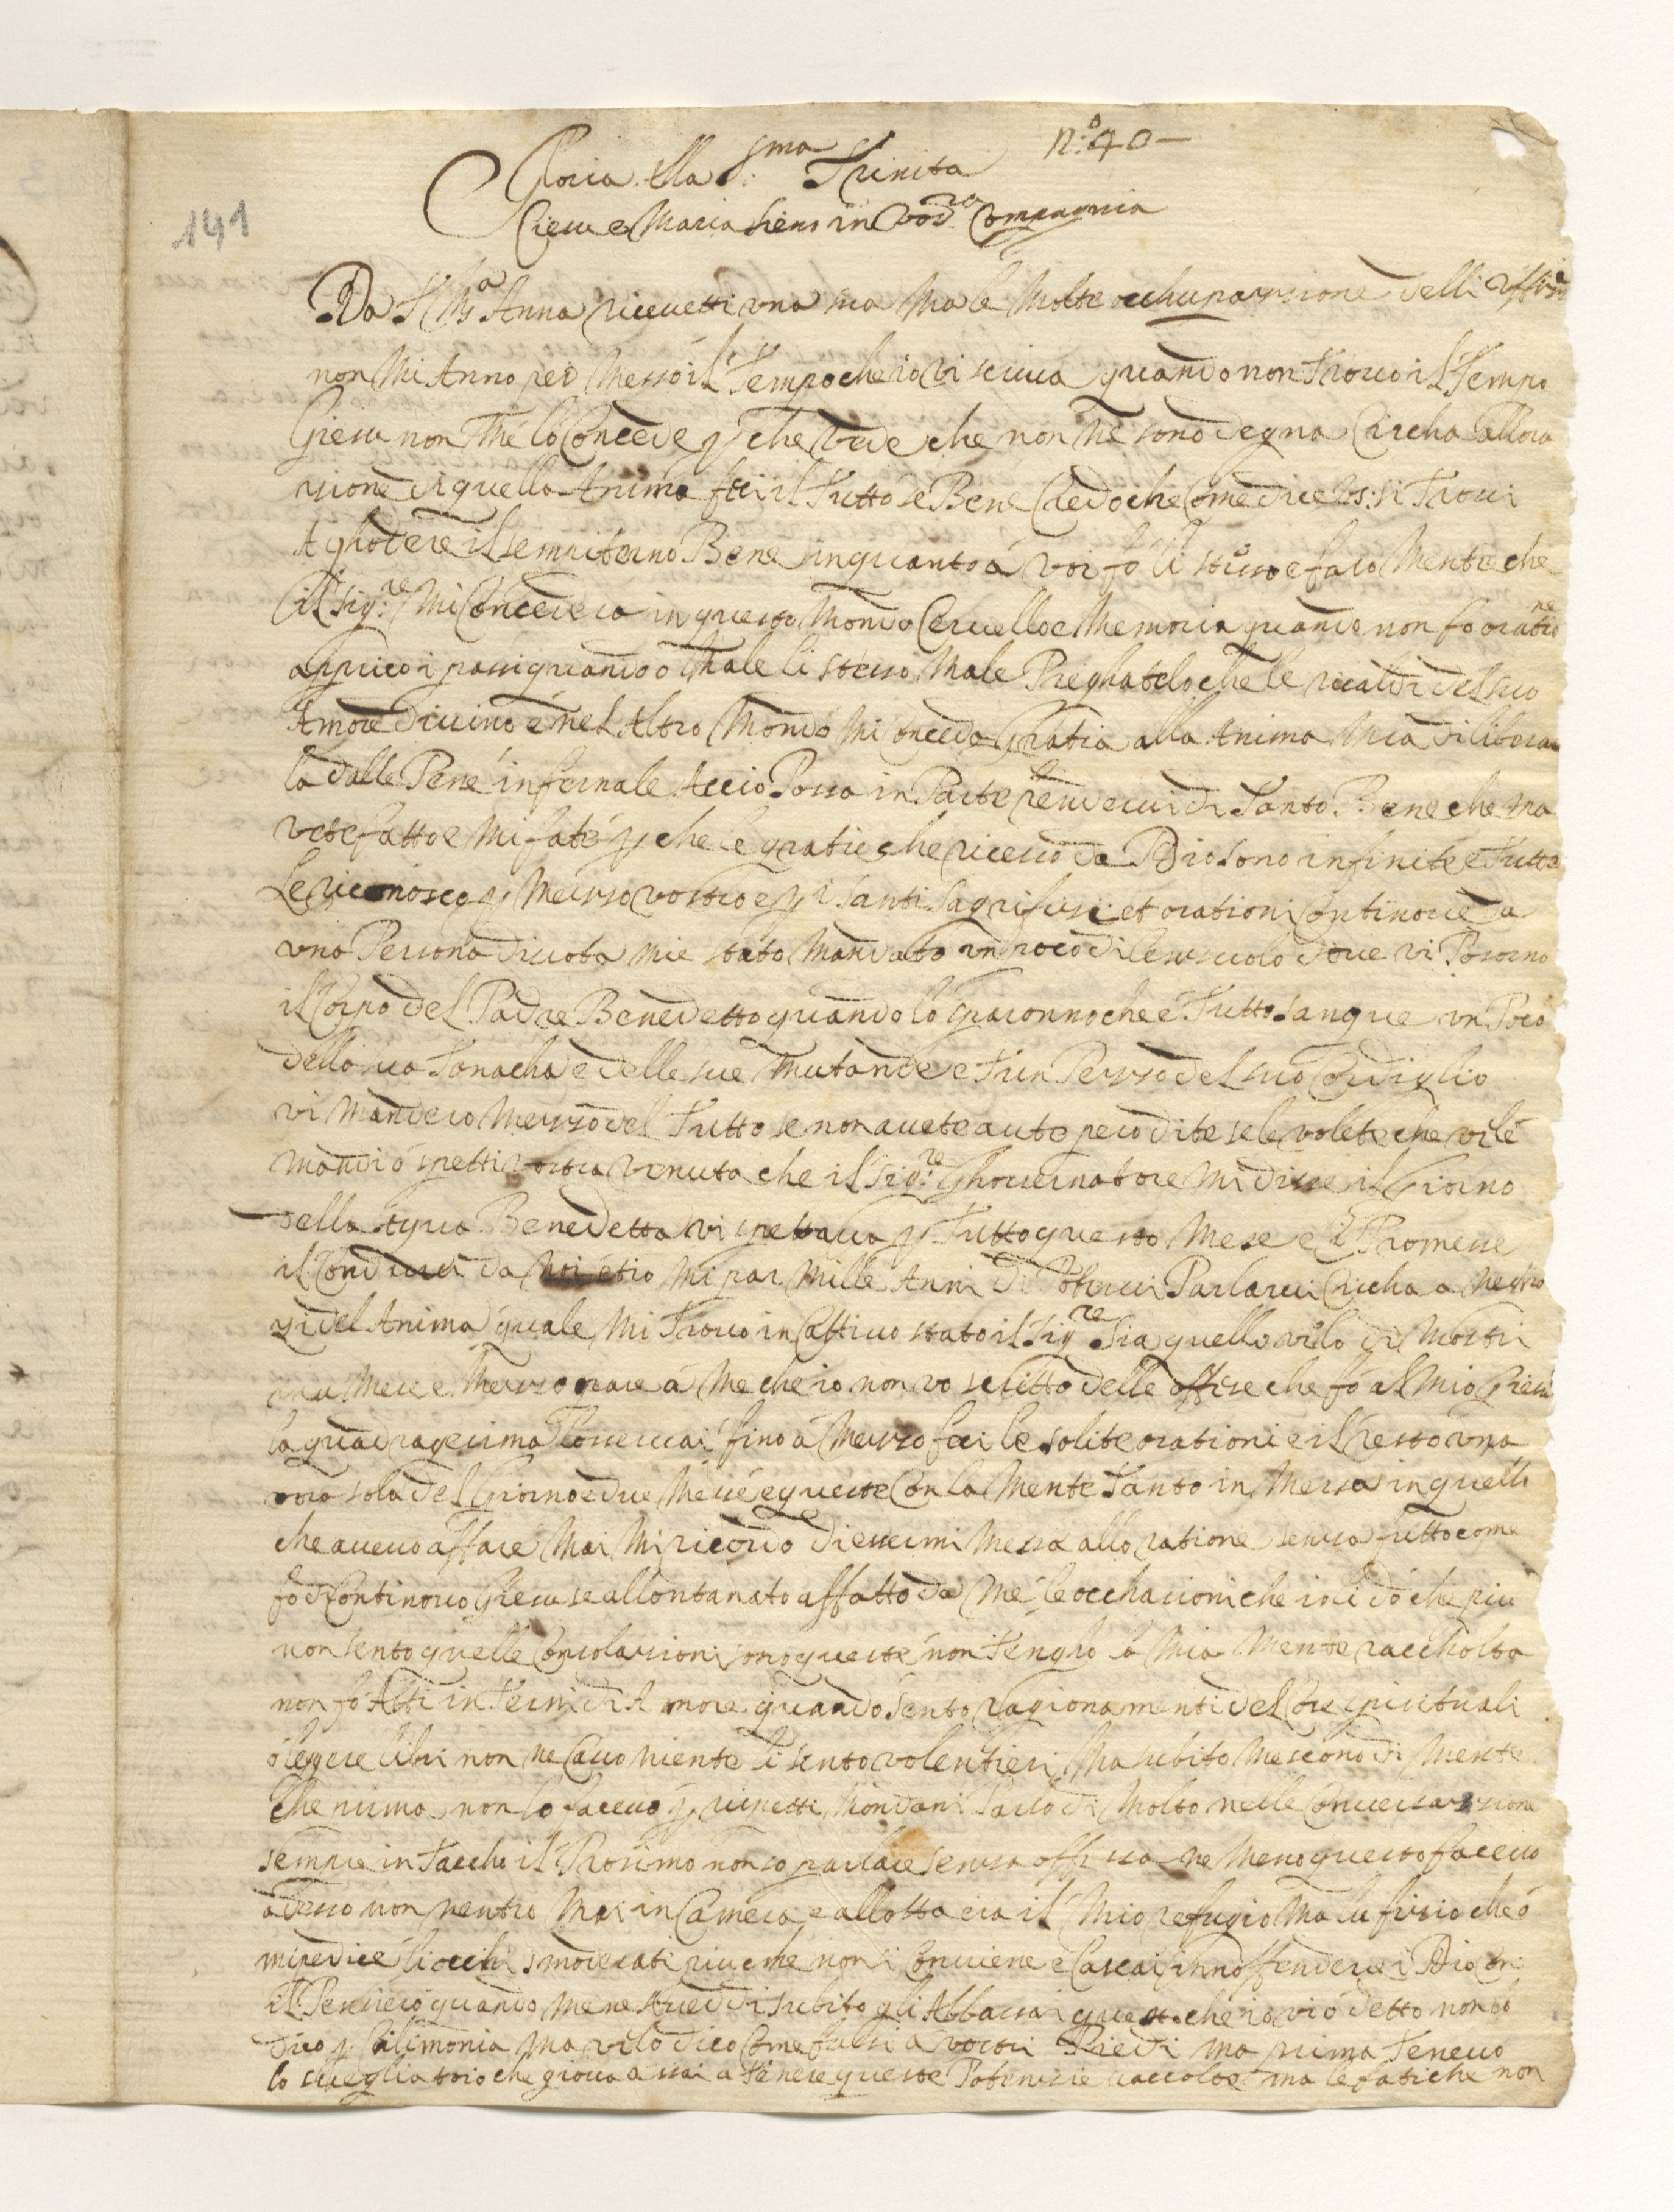 nº: 40
Gloria alla S:ma Trinita
Giesu e Maria sieno in vos:ra Compagnia
141
Da S M:a Anna riceuetti una sua ma le molte ochuparsione delli uffisi
non mi Anno per messo il Tempo che io vi scriua quando non Trouo il Tempo
Giesu non me lo Concede p che vede che non ne sono degna Circha allora
sione di quella Anima feci il Tutto se Bene Credo che Come dice vos: si Troui
A ghodere il sempiterno Bene inquanto á voi fó li stesso e faro Mentre che
il Sig:re mi Concedera in questo Mondo Ceruello e Memoria quando non fo oratio ne
applico i passi quando o Male li stesso Male Preghatelo che le riscaldi del suo
Amore Diuino e nel Altro Mondo mi Conceda Gratia alla Anima Mia di liberar
la dalle Pene infernale Accio Possa in Parte renderui di Tanto Bene che ma
vete fatto e mi fate p che le gratie che riceuo da Dio sono infinite e Tutte
Le riconosco p Meszo vostro e p i Santi Sagrifisi et orationi Continoue da
una Persona diuota mie stato Mandato un poco di lensuolo doue vi Posorno
il Corpo del Padre Benedetto quando lo che é Tutto sangue un Poco
della sua Tonacha e delle sue Mutande e Fun Persso del suo Cordiglio
vi Mandero Messo del Tutto se non auete auto pero dite se le volete che ve le
mandi ó spetti vostra venuta che il Sig:re Ghouernatore mi disse il Giorno
della Aqua Benedetta vi spettaua p Tutto questo Mese e li Promesse
il Condurui da mi par Mille Anni di Poterui Parlarui Circha a neghos
si del Anima quale mi Trouo in Cattiuo stato il Sig:re Sia quello ve lo di Mostri
Mese e Messo pare á Me che io non vo se litto delle offese che fó al Mio Giesu
la quadragesima fino á Messo feci le solite orationi e il resto una
ora sola del Giorno e due Messe e queste Con la Mente Tanto in Messa in quello
che aueuo affare Mai mi ricordo di essermi Messa alloratione senssa futto come
fo di Continouo Giesu se allontanato affatto da Me le occhasioni che io li do che piu
non sento quelle Consolassioni sono queste non Tengho la Mia Mente racchol ta
non fo Atti interni di Amore quando sento ragionamenti del ore spirituali
ó leggere libri non ne Cauo niente li sento volentieri Ma subito mescono di Mente
Che prima non lo faceuo p rispetti Mondani Parlo di Molto nelle Conuersassione
sempre in Taccho il Prosimo non so parlare senssa offesa ne Meno questo faceuo
adesso non nentro Mai in Camera e allotta era il Mio refugio Ma lu fisio che ó
mi pedice li occhi smoderati piu che non si Conuiene e Cascai inn offendere i Dio Con
il Pensiero quando me ne Aueddi subito gli Abbassai questo che io vi ó detto non lo
dico p Cilimonia ma ve lo dico Come fussi a vostri Piedi ma prima Teneuo
lo suegliatoio che gioua assai a tenere queste Potensie raccolte ma le fatiche non